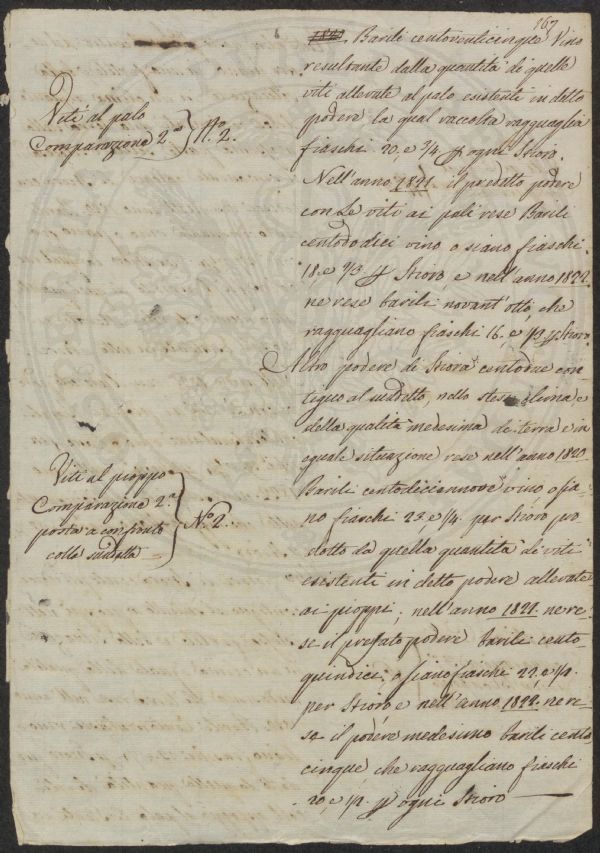 167
1820 Barili centoventicinque Vino
resultante dalla quantità di quelle
viti allevate al palo esistenti in detto
podere la qual raccolta ragguaglia
fiaschi 20, e 3/4 p ogni Stioro.
Nell'anno 1821. il predetto podere
con Le viti ai pali rese Barili
centododici vino o siano fiaschi
18. e 2/3 p Stioro, e nell'anno 1822.
ne rese barili novant'otto, che
ragguagliano fiaschi 16, e 1/3 p Stioro.
Altro podere di Stiora centodue con-
tiguo al suddetto, nello stesso clima e
della qualità medesima di terra e in
eguale situazione rese nell'anno 1820
Barili centodiciannove vino, o sia-
no fiaschi 23, e 1/4. per Stioro pro-
dotto da quella quantità di viti
esistenti in detto podere allevate
ai pioppi; nell'anno 1821. ne re-
se il prefato podere barili cento-
quindici o siano fiaschi 22, e 1/2.
per Stioro e nell'anno 1822. ne re-
se il podere medesimo barili cento
cinque, che ragguagliano fiaschi
20, e 1/2 p ogni Stioro
Viti al palo
Comparazione 2.a
N.o 2.
Viti al pioppo
Comparazione 2.a
posta a confronto
colla suddetta =
N.o 2.